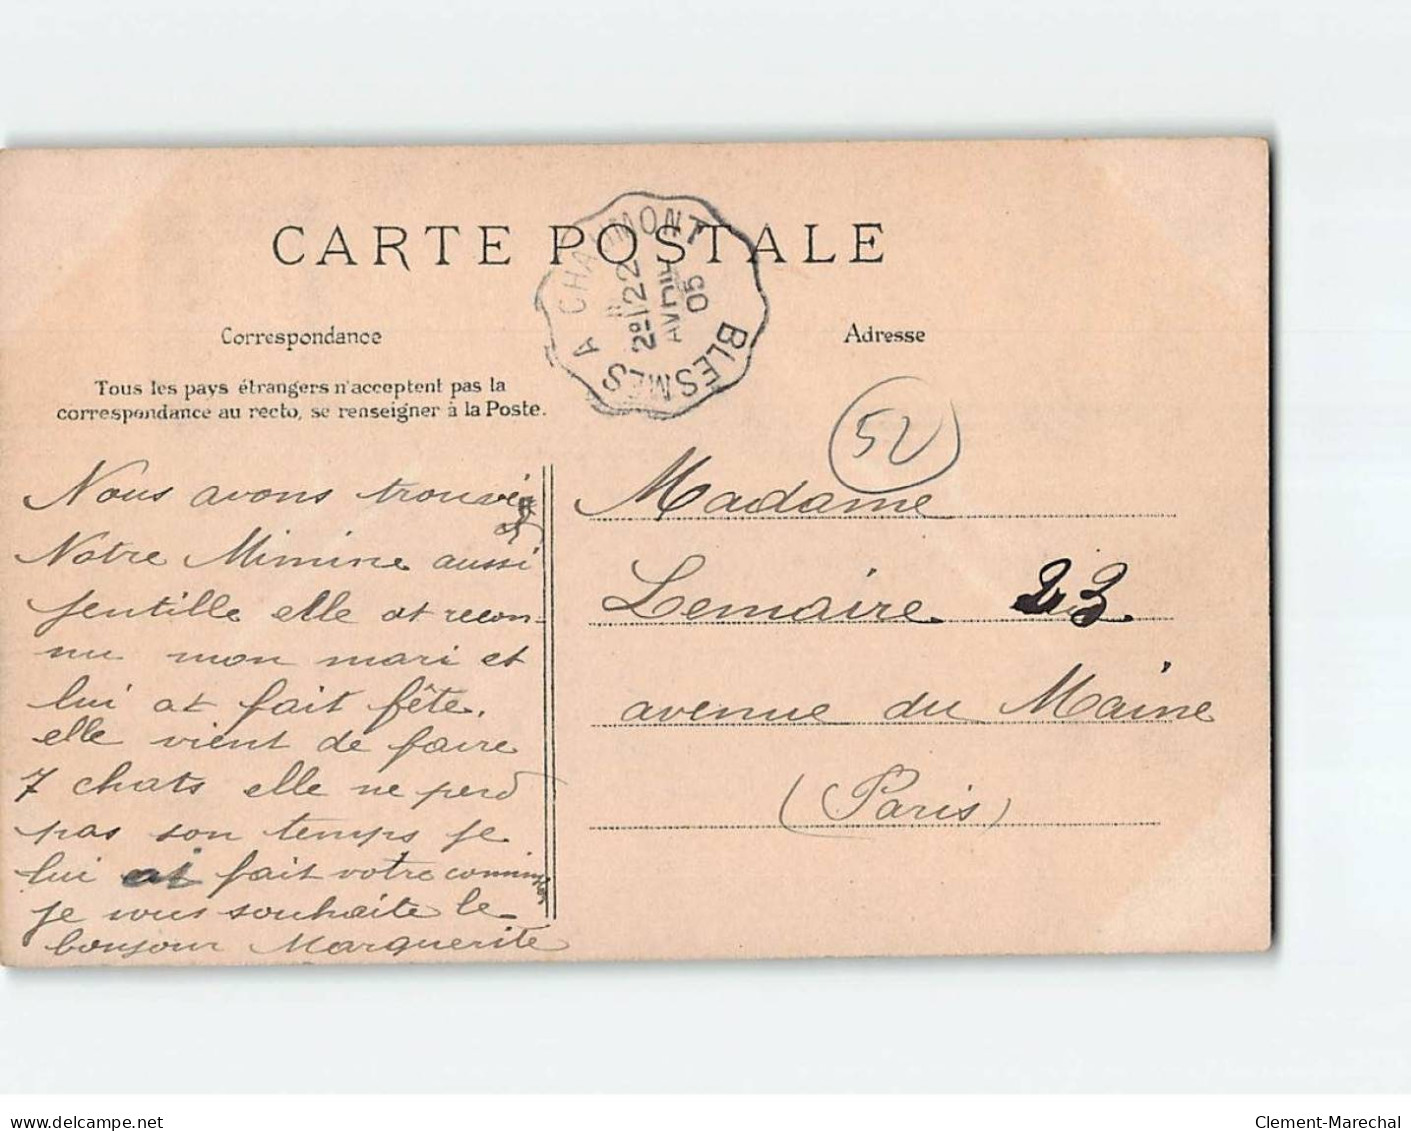 CARTE POSTALE
BLESMES A CHAUMONT
2º 22
AVRIL
05
Correspondance
Adresse
Tous les pays étrangers n'acceptent pas la
correspondance au recto, se renseigner à la Poste.
52
Nous avons trouvé
Notre Mimine aussi
jentille elle at recon-
nu mon mari et
lui at fait fête.
elle vient de faire
7 chats elle ne perd
pas son temps je
lui ai fait votre
je vous souhaite le
bonjour Marguerite
Madame
Lemaire 23
avenue du Maine
(Paris)
delcampe.net
Clement-Marechal